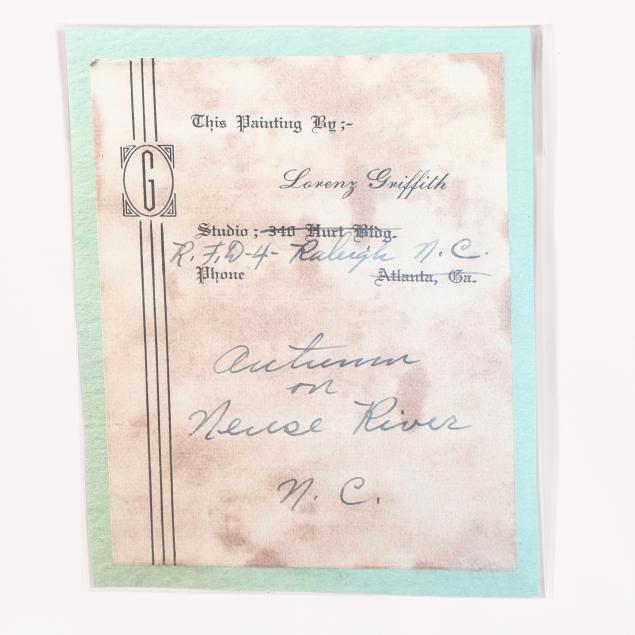 This Painting By;-
G
Lorenz Griffith
Studio; 340 Hurt Bldg.
R.F.D-4- Raleigh N.C.
Phone Atlanta, Ga.
Autumn
on
Neuse River
N. C.